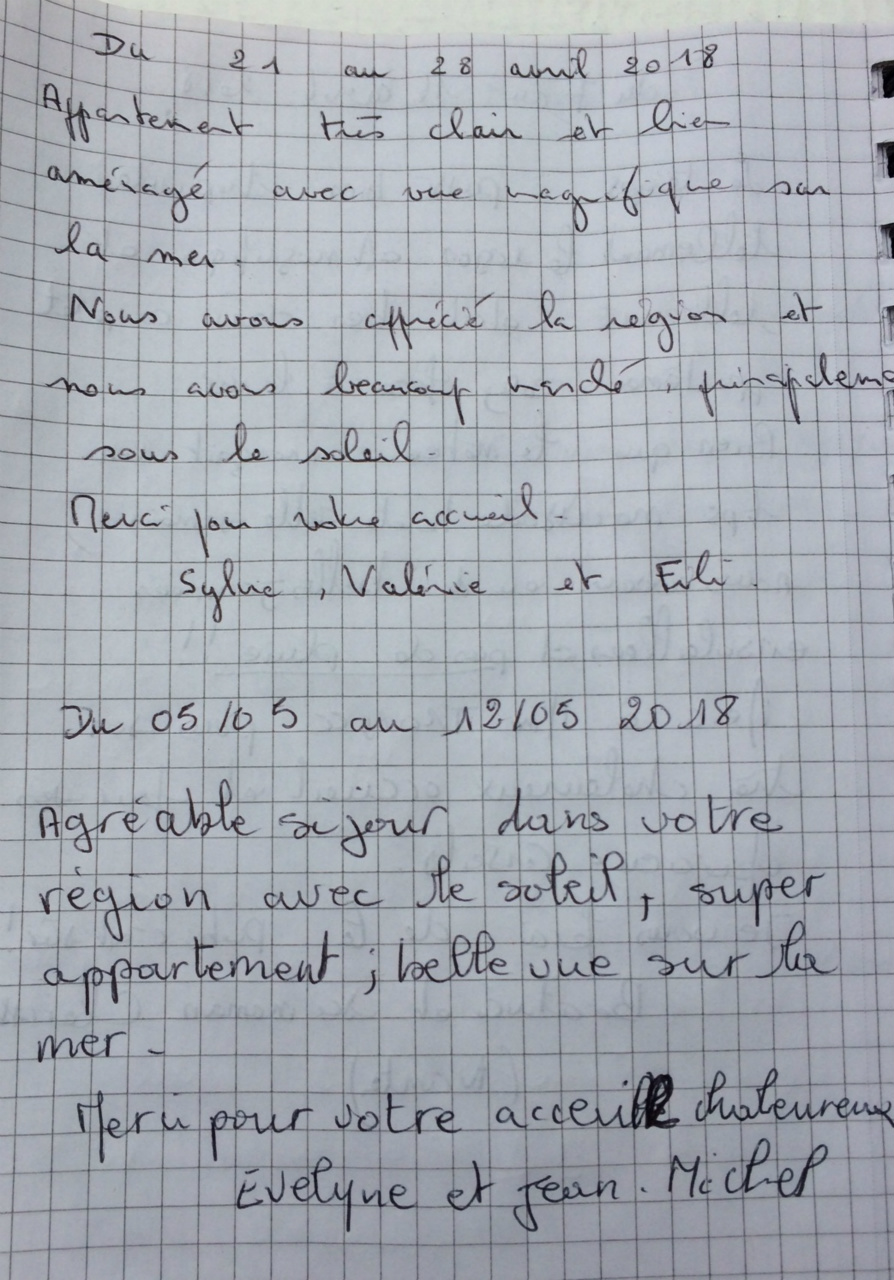 Du 21 au 28 avril 2018
Appartement très clair et bien
aménagé avec vue magnifique sur
la mer.
Nous avons apprécié la région et
nous avons beaucoup marché, principalem
sous le soleil.
Merci pour votre accueil.
Sylvie, Valérie et
Du 05/05 au 12/05 2018
Agréable séjour dans votre
région avec le soleil, super
appartement; belle vue sur la
mer.
Merci pour votre acceuil chaleureux
Evelyne et Jean-Michel